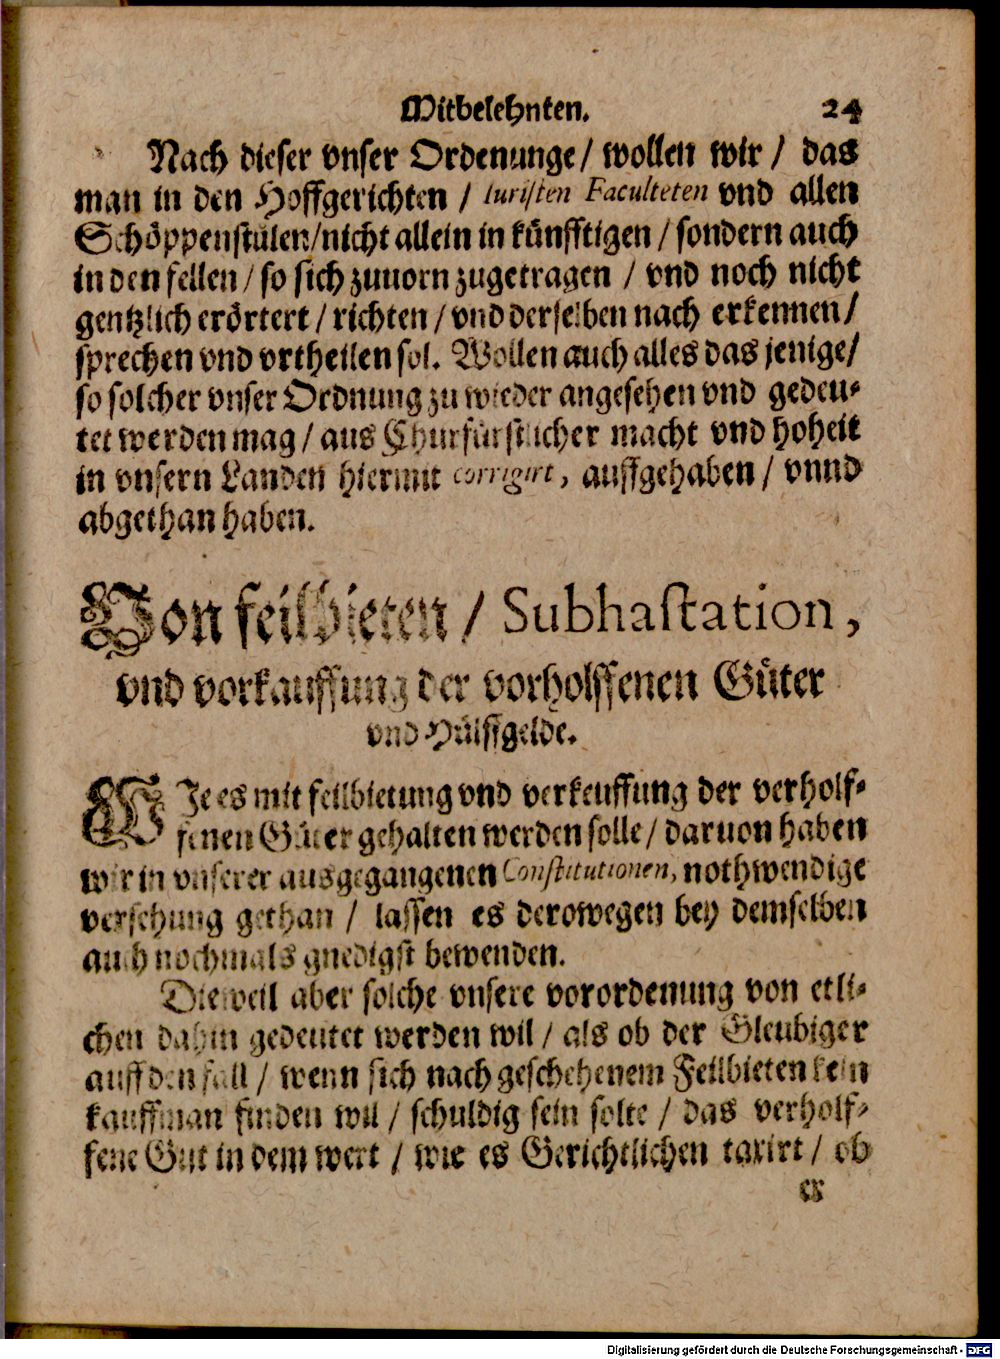 Mitbelehnten. 24
Nach dieser vnser Ordenunge / wollen wir / das
man in den Hoffgerichten / Iuristen Faculteten vnd allen
Schöppenstülen/nicht allein in künfftigen / sondern auch
in den fellen / so sich zuuorn zugetragen / vnd noch nicht
gentzlich erörtert / richten / vnd derselben nach erkennen /
sprechen vnd vrtheilen sol. Wollen auch alles das jenige/
so solcher vnser Ordnung zu wieder angesehen vnd gedeu-
tet werden mag / aus Churfürstlicher macht vnd hoheit
in vnsern Landen hiermit corrigirt, auffgehaben / vnnd
abgethan haben.
Von feilbieten / Subhastation,
vnd vorkauffung der vorholffenen Güter
vnd Hülffgelde.
WJe es mit feilbietung vnd verkeuffung der verholf-
fenen Güter gehalten werden solle / daruon haben
wir in vnserer ausgegangenen Constitutionen, nothwendige
versehung gethan / lassen es derowegen bey demselben
auch nochmals gnedigst bewenden.
Dieweil aber solche vnsere vorordenung von etli-
chen dahin gedeutet werden wil / als ob der Gleubiger
auff den fall / wenn sich nach geschehenem Feilbieten kein
kauffman finden wil / schuldig sein solte / das verholf-
fene Gut in dem wert / wie es Gerichtlichen taxirt / ob
er
Digitalisierung gefördert durch die Deutsche Forschungsgemeinschaft - DFG